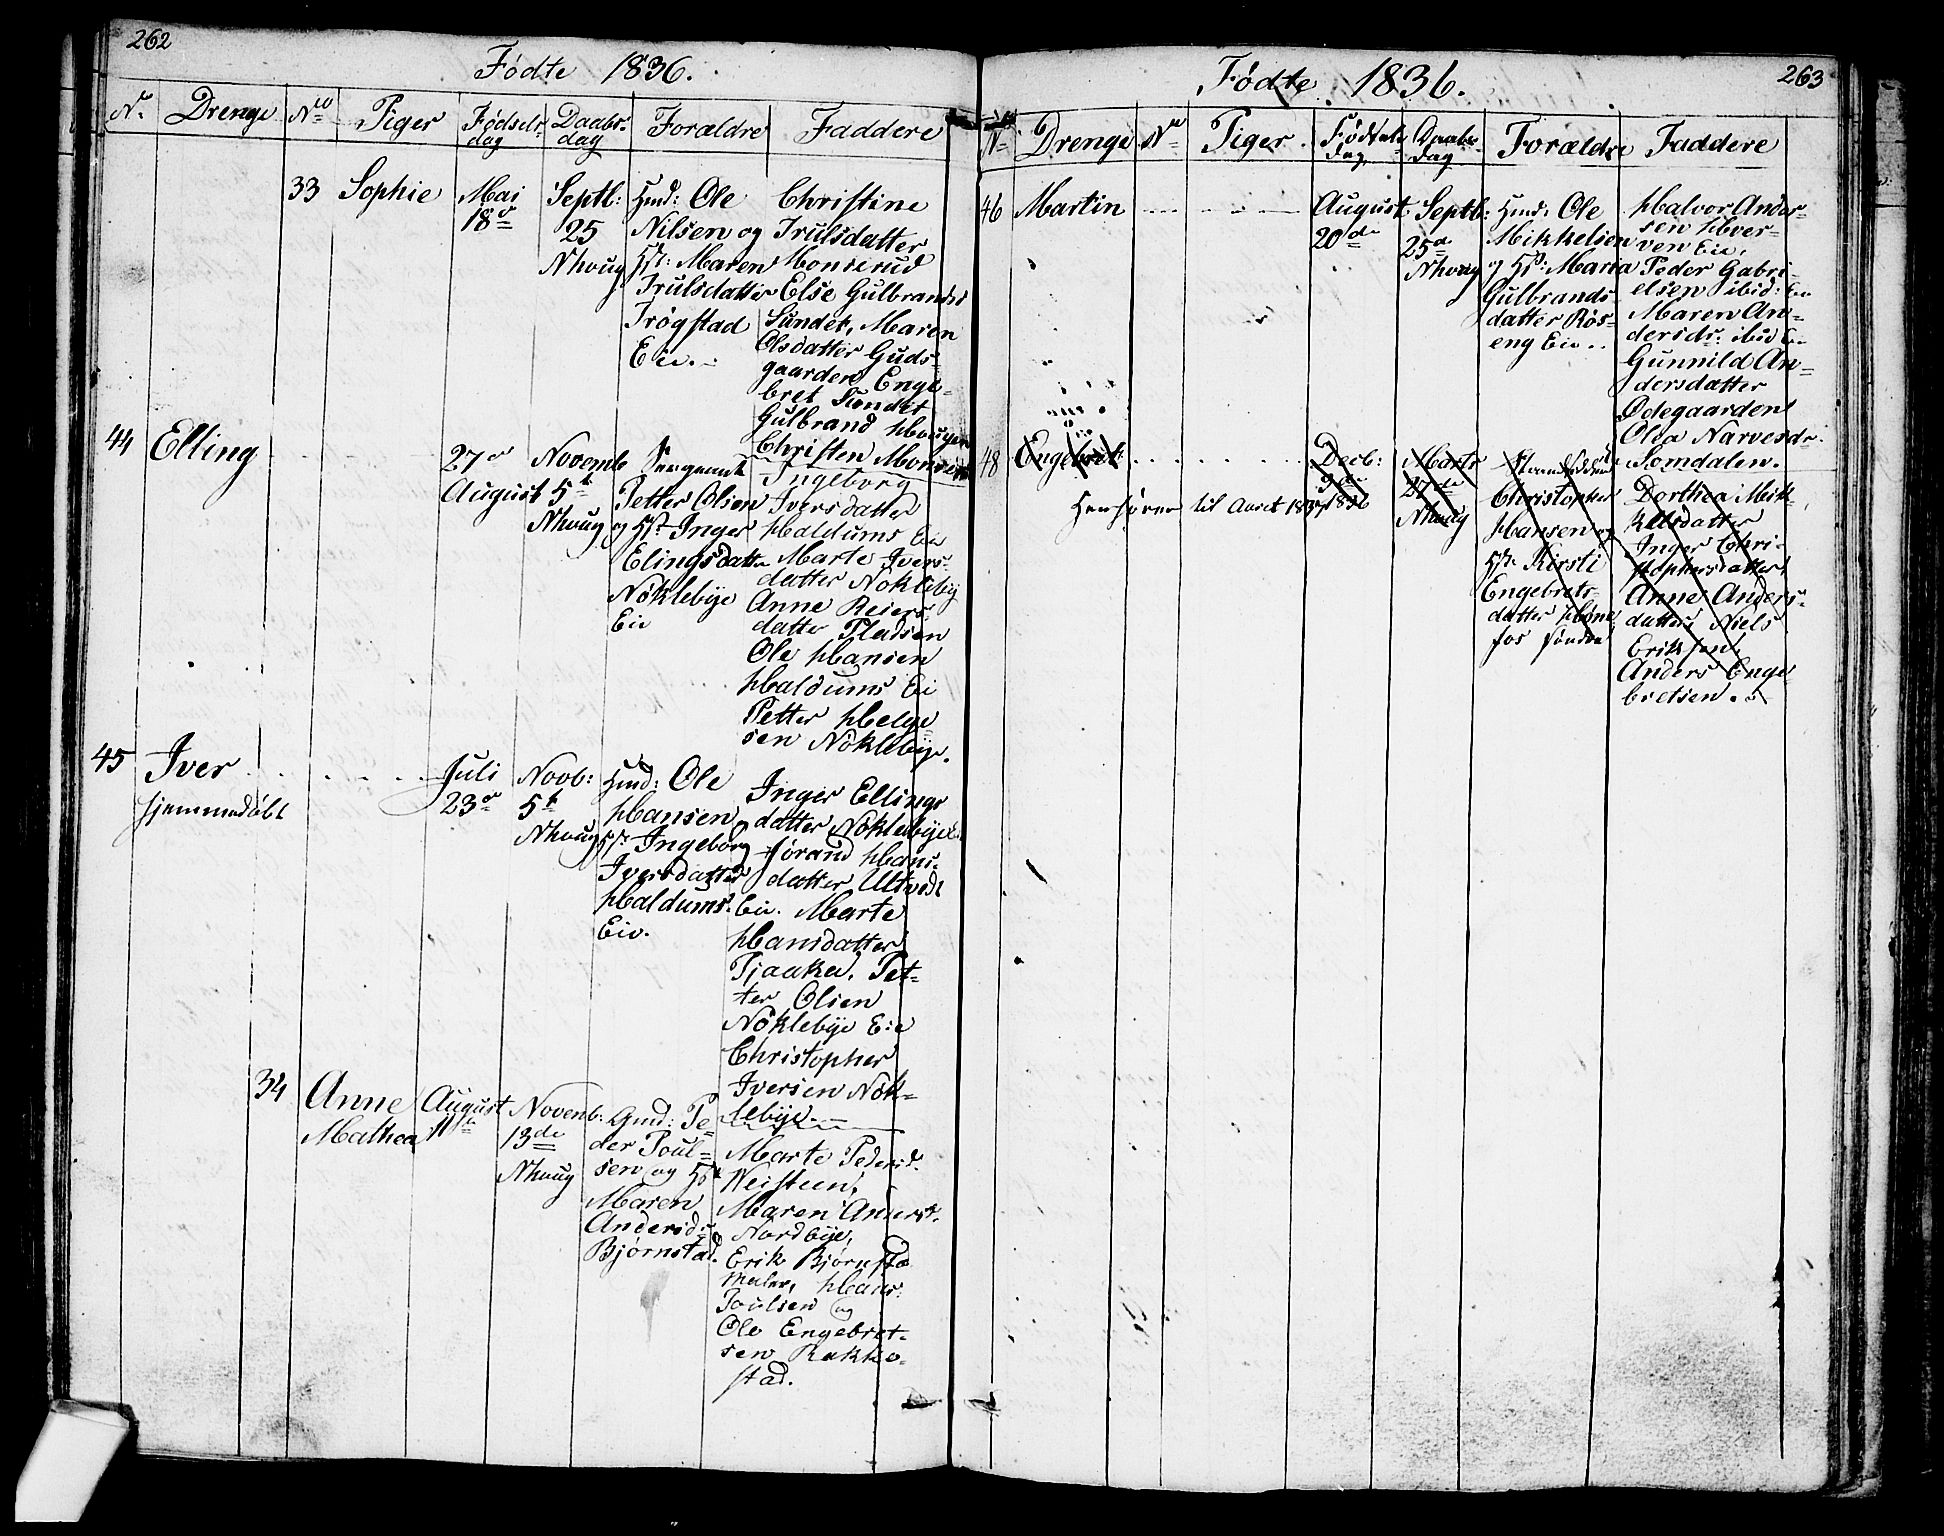 262
Födte 1836.
No. Drenge No Piger Födsels-dag Daabs-dag Forældre Faddere
33 Sophie
Mai
18de
Septb:
25
Nhoug
Hmd: Ole
Nilsen og
Hst: Maren
Trulsdatter
Trögstad
Eie.
Christine
Trulsdatter
Monserud
Else Gulbrandsd
Sundet, Maren
Olsdatter Guds-
gaarden, Enge-
bret Sundet
Gulbrand Houger
Christen Monserud
44 Elling
27de
August
Novemb
5t
Nhoug
Sergeant
Petter Olsen
og Hst Inger
Elingsdatter
Nöklebÿe
Eie
Ingeborg
Iversdatter
Haldums Eie
Marte Ivers-
datter Nöklebÿ
Anne Reiers-
datter Pladsen
Ole Hansen
Haldums Ei
Petter Helge
sen Nöklebÿe.
45 Iver
hjemmedöbt
Juli
23de
Novb:
5t
Nhoug
Hmd: Ole
Hansen og
Hst: Ingeborg
Iversdatter
Haldums
Eie.
Inger Ellings
datter Nöklebÿe
Jörand Hans-
datter Ultvedt
Eie. Marte
Hansdatter
Tjaaka, Pet-
ter Olsen
Nöklebÿe Eie
Christopher
Iversen Nök-
lebÿe.
34 Anne
Mathea
August
11te
Novemb:
13de
Nhoug
Gmd: Pe-
der Poul-
sen og Hst
Maren
Andersd:
Björnstad.
Marte Pedersd.
Weisteen,
Maren Andersd.
Nordbÿe,
Erik Björnstad
Maler, Hans
Poulsen og
Ole Engebret-
sen Rakke-
stad.
263
Födte 1836.
No Drenge No Piger Födsels dag Daabs dag Forældre Faddere
46 Martin
August
20de
Septb:
25de
Nhoug
Hmd: Ole
Mikkelsen
og Hst: Maria
Gulbrands
datter Rös-
eng Eie
Halvor Ander-
sen Hver-
ven Eie,
Peder Gabri-
elsen ibid: Eie
Maren An-
dersdr: ibid Eie
Gunnild An-
dersdatter
Ödegaarden
Olea Narvesdr.
Somdalen.
48 Engebret
Henhörer til Aaret 1837
Decb:
9de
1836
Marts
27de
Nhoug
Christopher
Hansen og
Hst. Kirsti
Engebrets-
datter Höne
fos söndre
Dorthea Mik-
kelsdatter
Inger Chri-
stophersdatter
Anne Anders-
datter, Niels
Eriksen,
Anders Enge
bretsen.